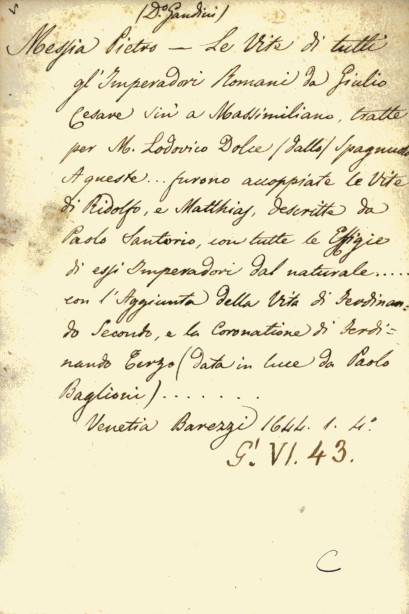 (D.º Gandini)
Messia Pietro — Le Vite di tutti
gl'Imperadori Romani da Giulio
Cesare sin' a Massimiliano, tratte
per M. Lodovico Dolce (dallo) Spagnuolo
A queste... furono accoppiate le Vite
di Ridolfo, e Matthias, descritte da
Paolo Santorio, con tutte le Effigie
di essi Imperadori dal naturale.....
con l'Aggiunta della Vita di Ferdinan-
do Secondo, e la Coronatione di Ferdi-
nando Terzo (data in luce da Paolo
Baglioni) . . . . . . .
Venetia Barezzi 1644. 1. 4º
G! VI. 43.
C